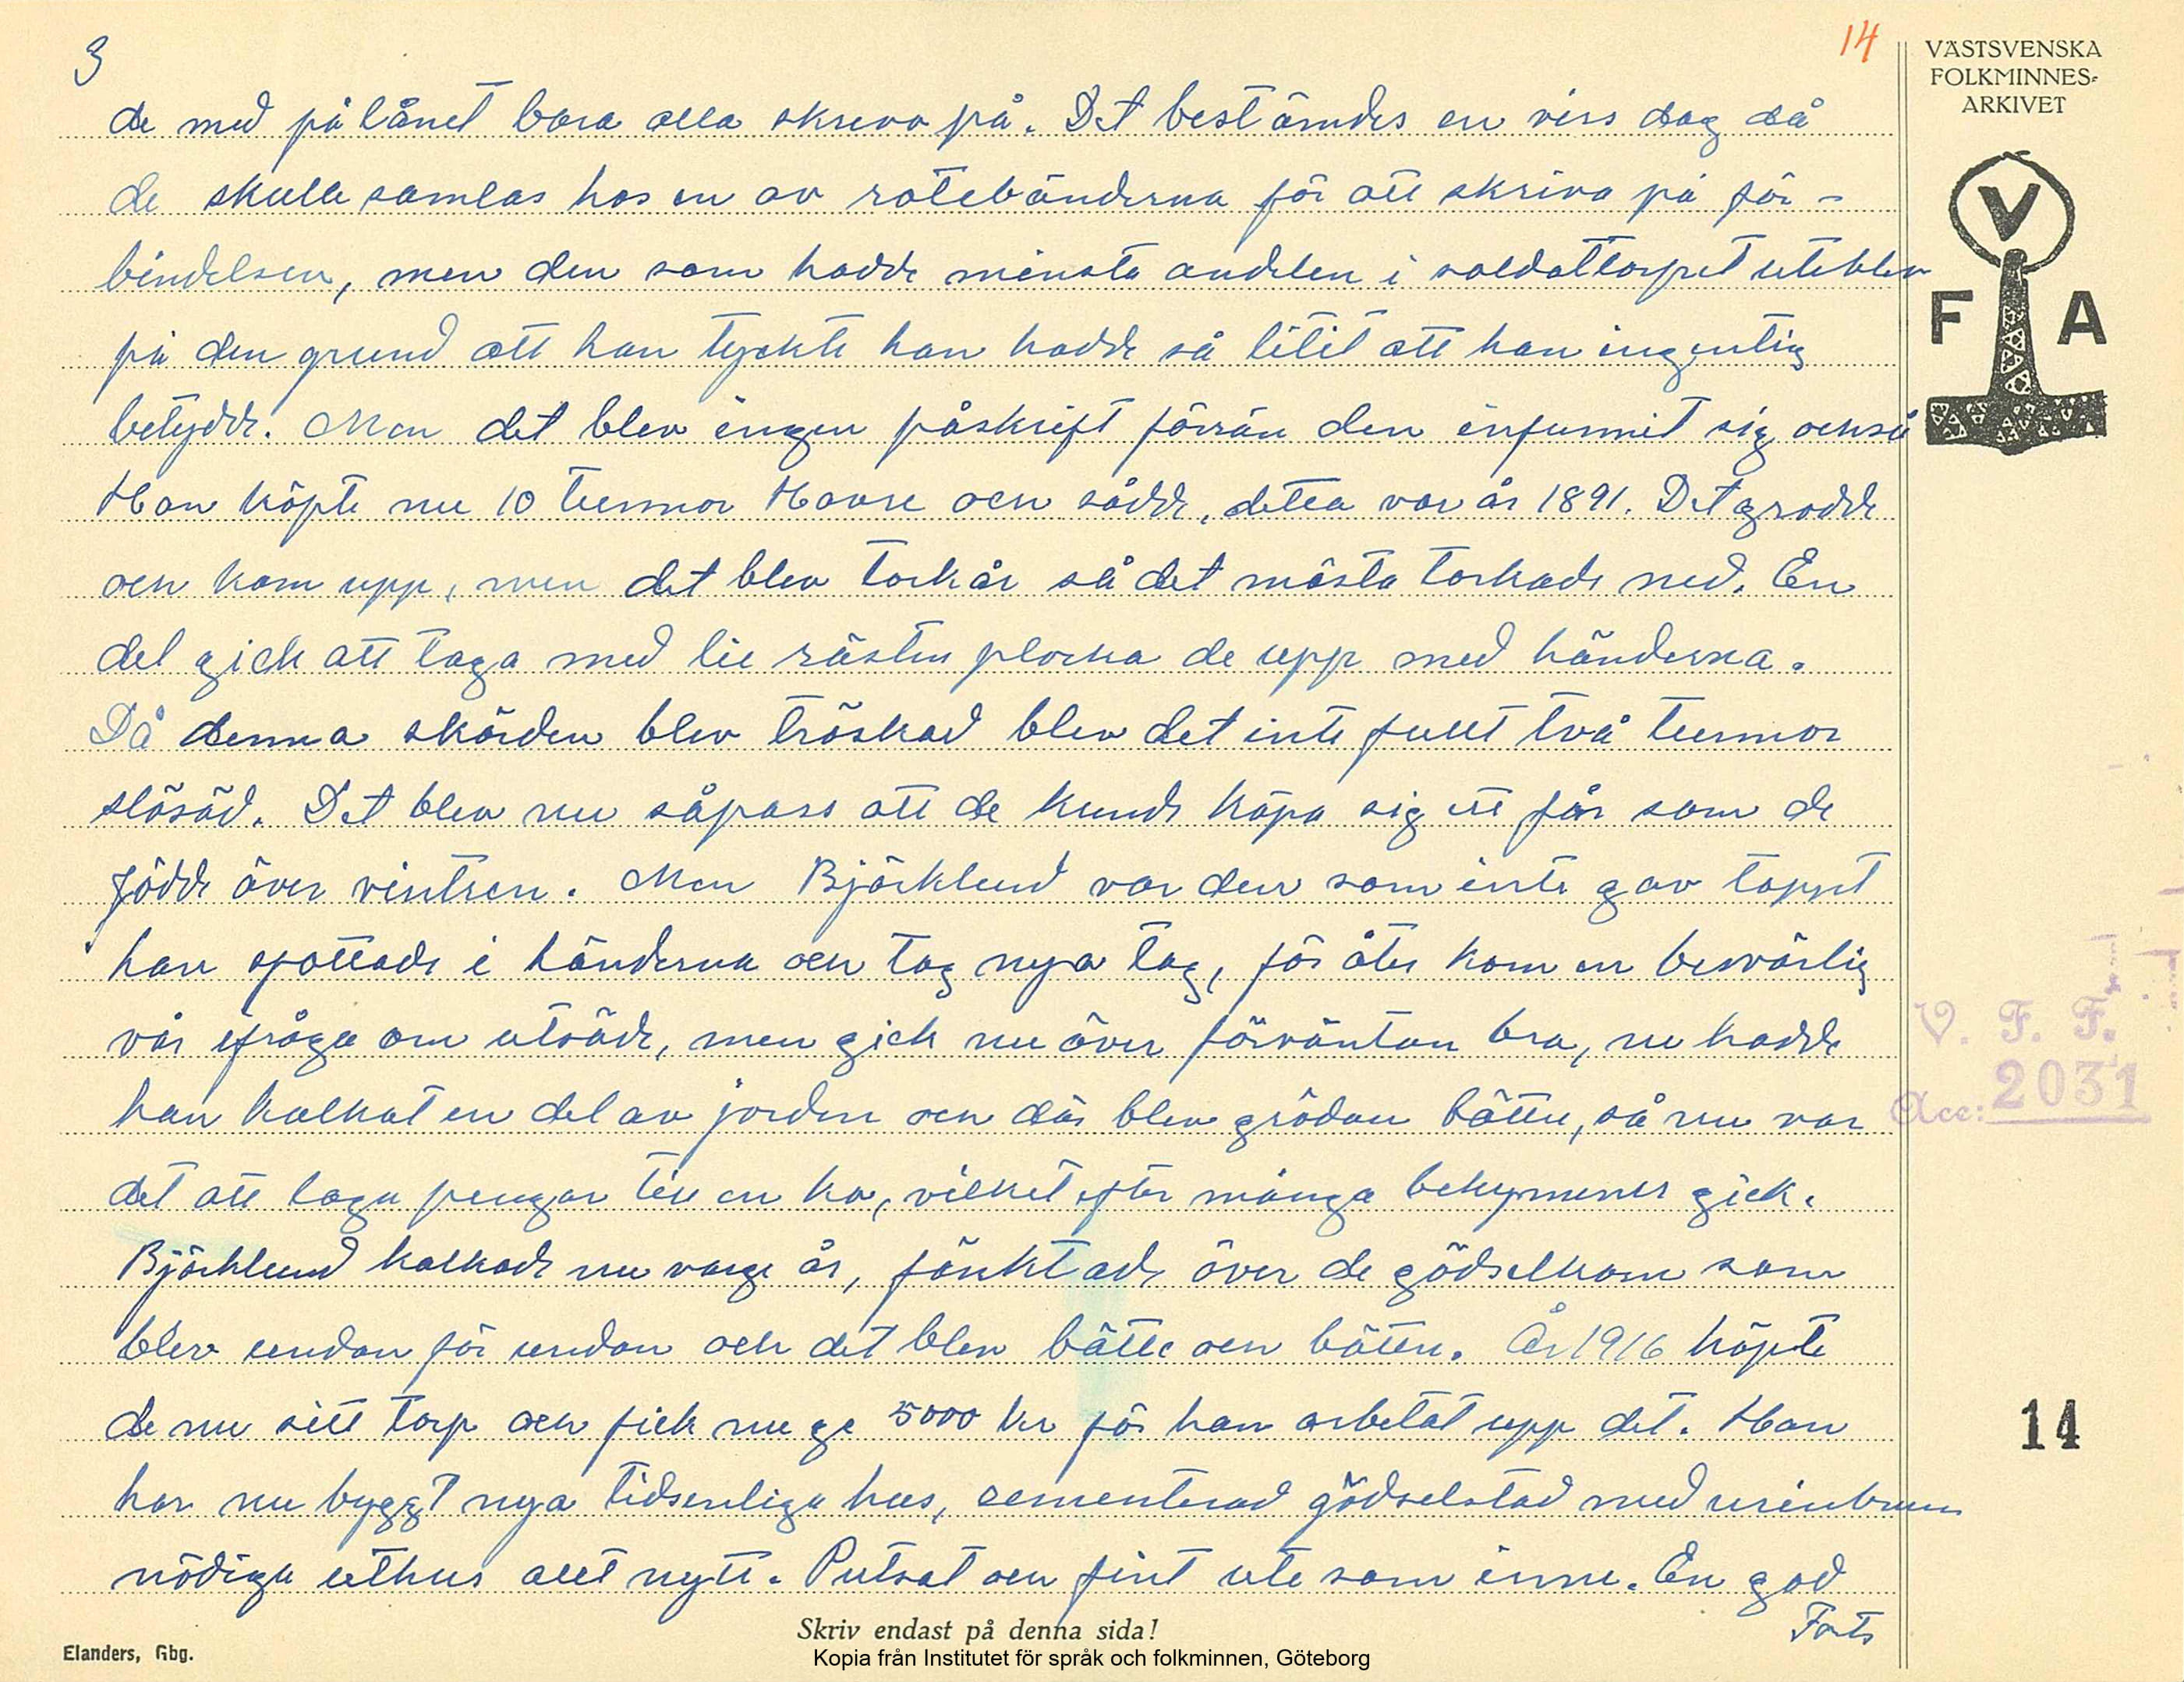 3
14
VÄSTSVENSKA
FOLKMINNES-
ARKIVET
V
F A
de med på lånet bara alla skrevo på. Det bestämdes en viss dag då
de skulle samlas hos en av rotebönderna för att skriva på för-
bindelsen, men den som hadde minsta andelen i soldattorpet uteblev
på den grund att han tyckte han hadde så litit att han ingenting
betydde. Men det blev ingen påskrift förrän den infunnit sig också
Han köpte nu 10 tunnor Havre och sådde, detta var år 1891. Det grodde
och kom upp, men det blev torkår så det mästa torkade ned. En
del gick att taga med lie rästen plocka de upp med händerna.
Då denna skörden blev tröskad blev det inte fullt två tunnor
slösäd. Det blev nu såpass att de kunde köpa sig ett får som de
födde över vintren. Men Björklund var den som inte gav tappt
han spottade i händerna och tog nya tag, för åter kom en besvärlig
vår ifråga om utsäde, men gick nu över förväntan bra, nu hadde
han kalkat en del av jorden och där blev grödan bättre, så nu var
det att laga pengar till en ko, vilket efter många bekymmer gick.
Björklund kalkade nu varje år, fönktade över de gödselkom som
blev undan för undan och det blev bätte och bättre. År 1916 köpte
de nu sitt torp och fick nu ge 5000 kr för han arbetat upp det. Han
har nu byggt nya tidsenliga hus, sementerad gödselstad med urinbrunn
nödiga uthus allt nytt. Putsat och fint ute som inne. En god
Forts
V. F. F.
Acc: 2031
14
Skriv endast på denna sida!
Elanders, Gbg.
Kopia från Institutet för språk och folkminnen, Göteborg